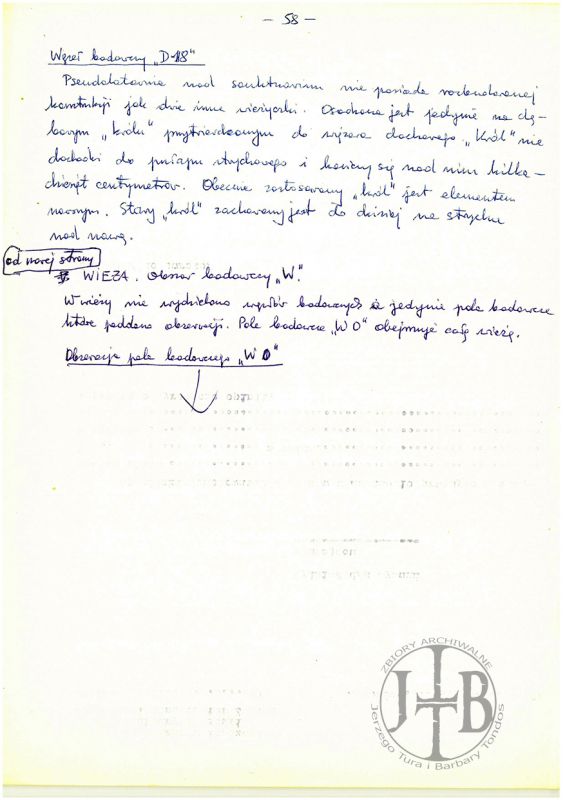 – 58 –
Węzeł badawczy „D-18"
Pseudolatarnia nad sanktuarium nie posiada rozbudowanej
konstrukcji jak dwie inne wieżyczki. Osadzona jest jedynie na dę-
bowym „królu" przytwierdzonym do wiązara dachowego „Król" nie
dochodzi do poziomu strychowego i kończy się nad nim kilka-
dziesiąt centymetrów. Obecnie zastosowany „król" jest elementem
nowym. Stary „król" zachowany jest do dzisiaj na strychu
nad nawą.
od nowej strony
WIEŻA. Obszar badawczy „W".
W wieży nie wydzielono węzłów badawczych a jedynie pola badawcze
które poddano obserwacji. Pole badawcze „W0" obejmuje całą wieżę.
Obserwacja pola badawczego „W0"
ZBIORY ARCHIWALNE
JTB
Jerzego Tura i Barbary Tondos